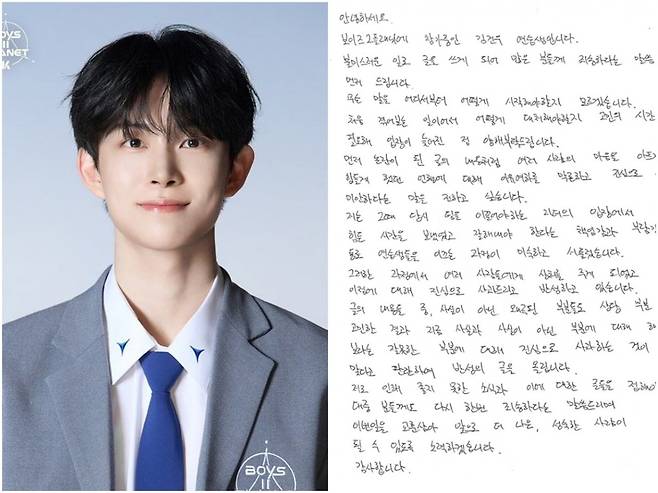 BOYS
II
PLANET
K
BOYS
II
안녕하세요.
보이즈2플래닛에 참가중인 김건우 연습생입니다.
불미스러운 일로 글을 쓰게 되어 많은 분들께 죄송하다는 말씀
먼저 드립니다.
무슨 말을 어디서부터 어떻게 시작해야할지 모르겠습니다.
처음 겪어보는 일이어서 어떻게 대처해야할지 고민의 시간
필요해 입장이 늦어진 점 양해부탁드립니다.
먼저 논란이 된 글의 내용처럼 여러 사람의 마음을 아프
힘들게 했던 언행에 대해 이유여하를 막론하고 진심으로
미안하다는 말을 전하고 싶습니다.
저는 그때 당시 팀을 이끌어야하는 리더의 입장에서
힘든 시간을 보냈었고 잘해내야 한다는 책임감과 부담감
동료 연습생들을 이끄는 과정이 미숙하고 서툴렀습니다.
그러한 과정에서 여러 사람들에게 상처를 주게 되었고
이점에 대해 진심으로 사과드리고 반성하고 있습니다.
글의 내용들 중, 사실이 아닌 왜곡된 부분들도 상당 부분
고민한 결과 지금 사실과 사실이 아닌 부분에 대해 해
보다는 잘못한 부분에 대해 진심으로 사과하는 것이
맞다고 판단하여 반성의 글을 올립니다.
저로 인해 좋지 못한 소식과 이에 대한 글들을 접해
대중 분들께도 다시 한번 죄송하다는 말씀드리며
이번일을 교훈삼아 앞으로 더 나은, 성숙한 사람이
될 수 있도록 노력하겠습니다.
감사합니다.